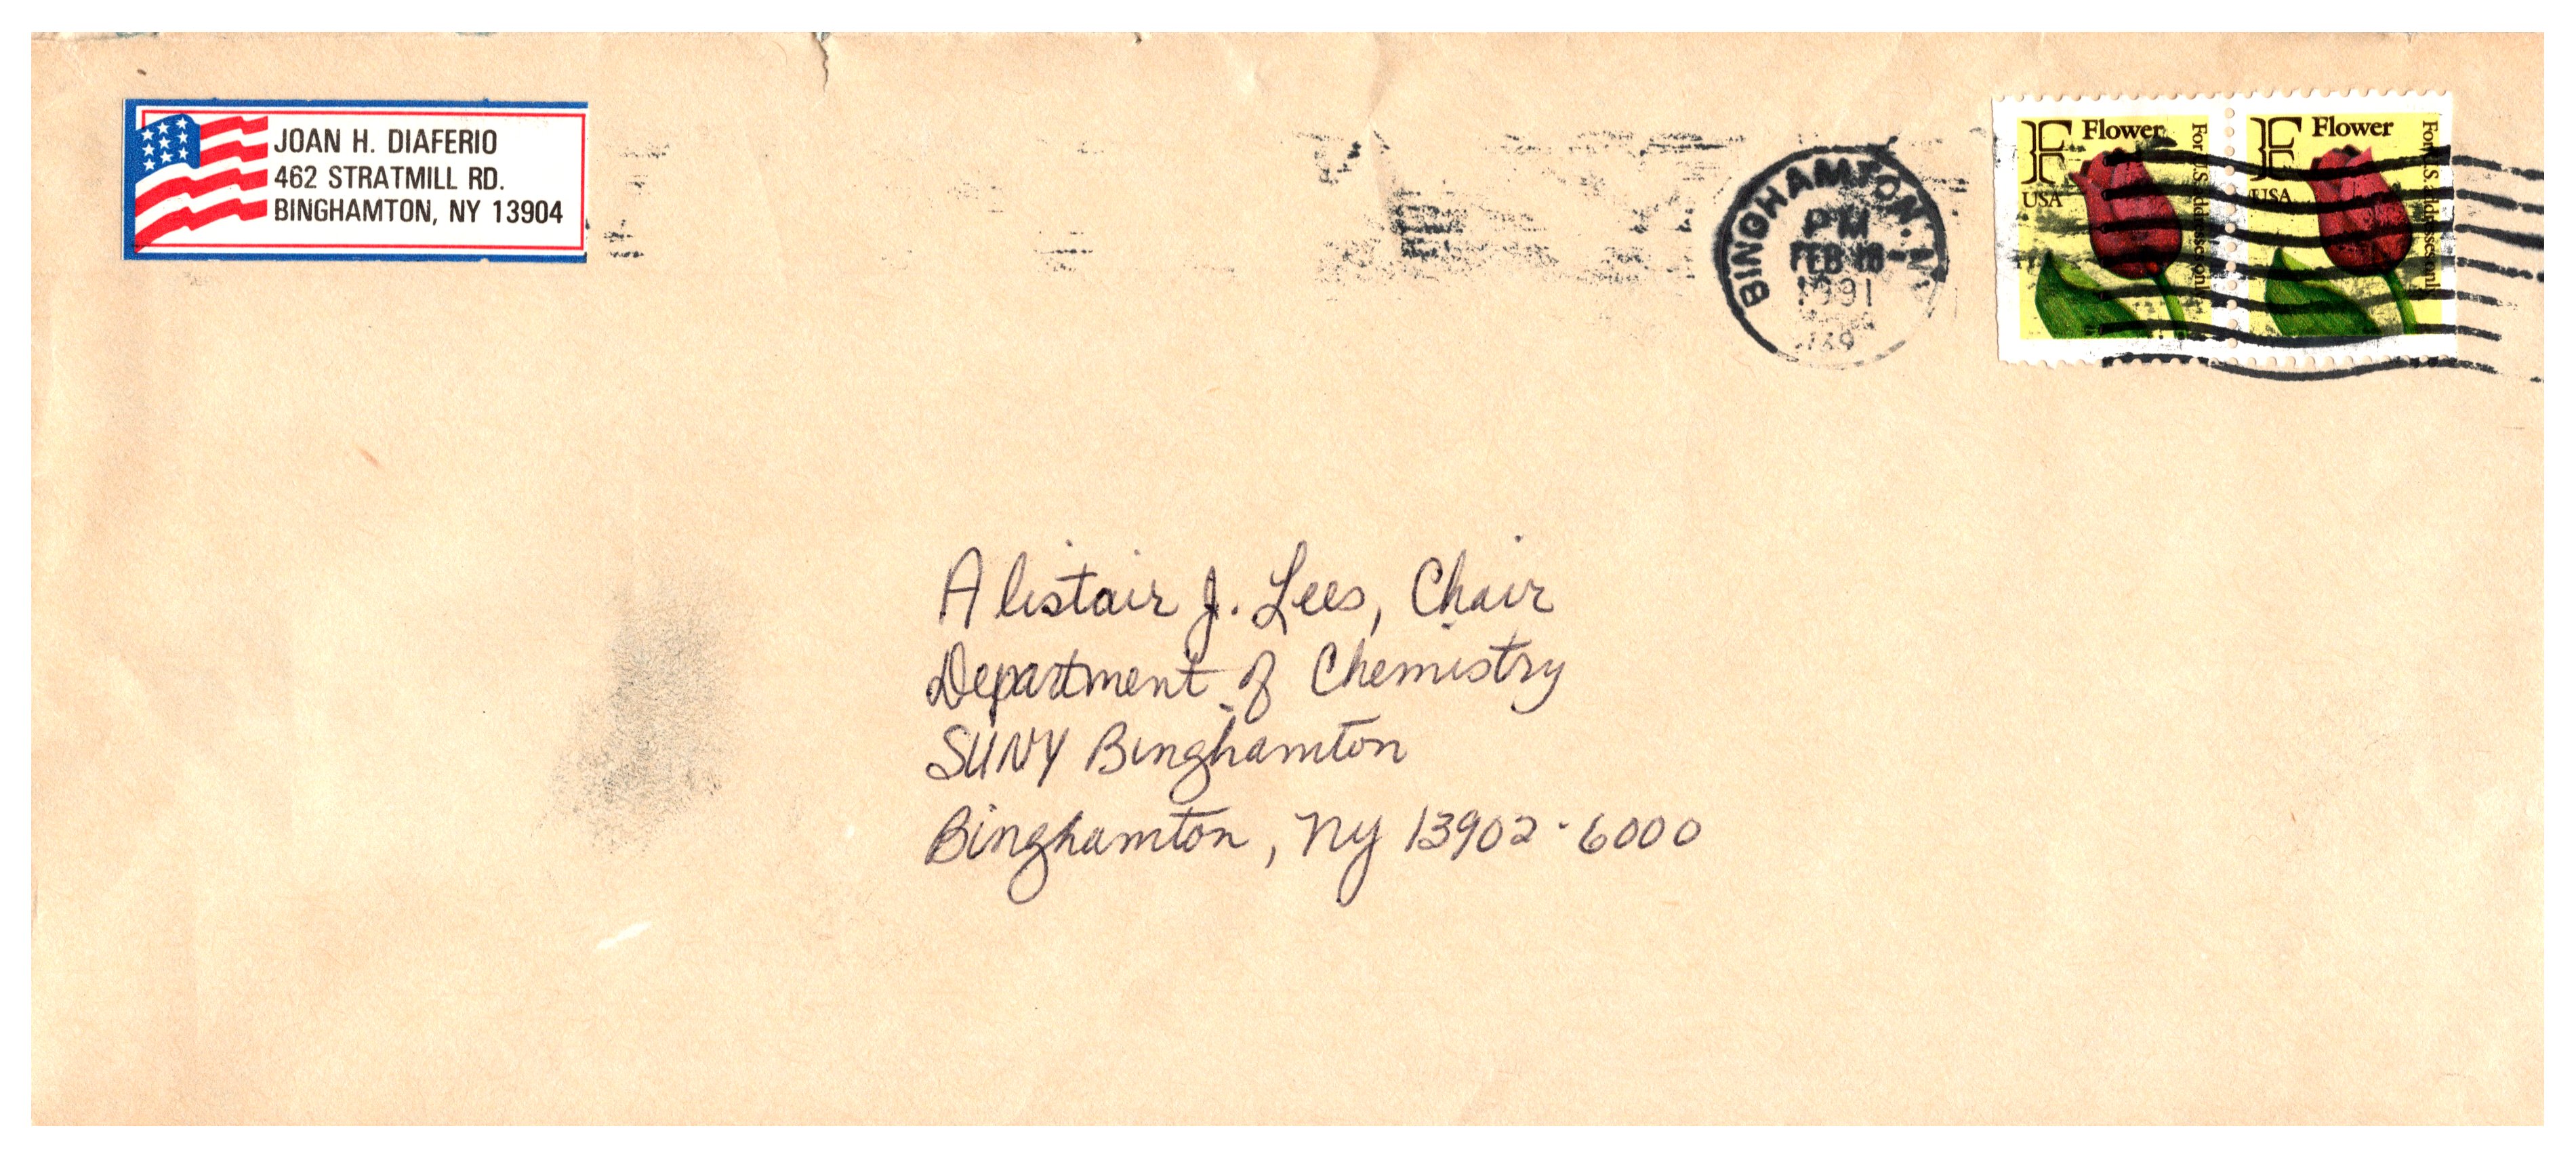 JOAN H. DIAFERIO
462 STRATMILL RD.
BINGHAMTON, NY 13904
BINGHAMTON, NY
PM
FEB 18
1991
139
F Flower
USA
For U.S. addresses only
F Flower
USA
For U.S. addresses only
Alistair J. Lees, Chair
Department of Chemistry
SUNY Binghamton
Binghamton, NY 13902-6000